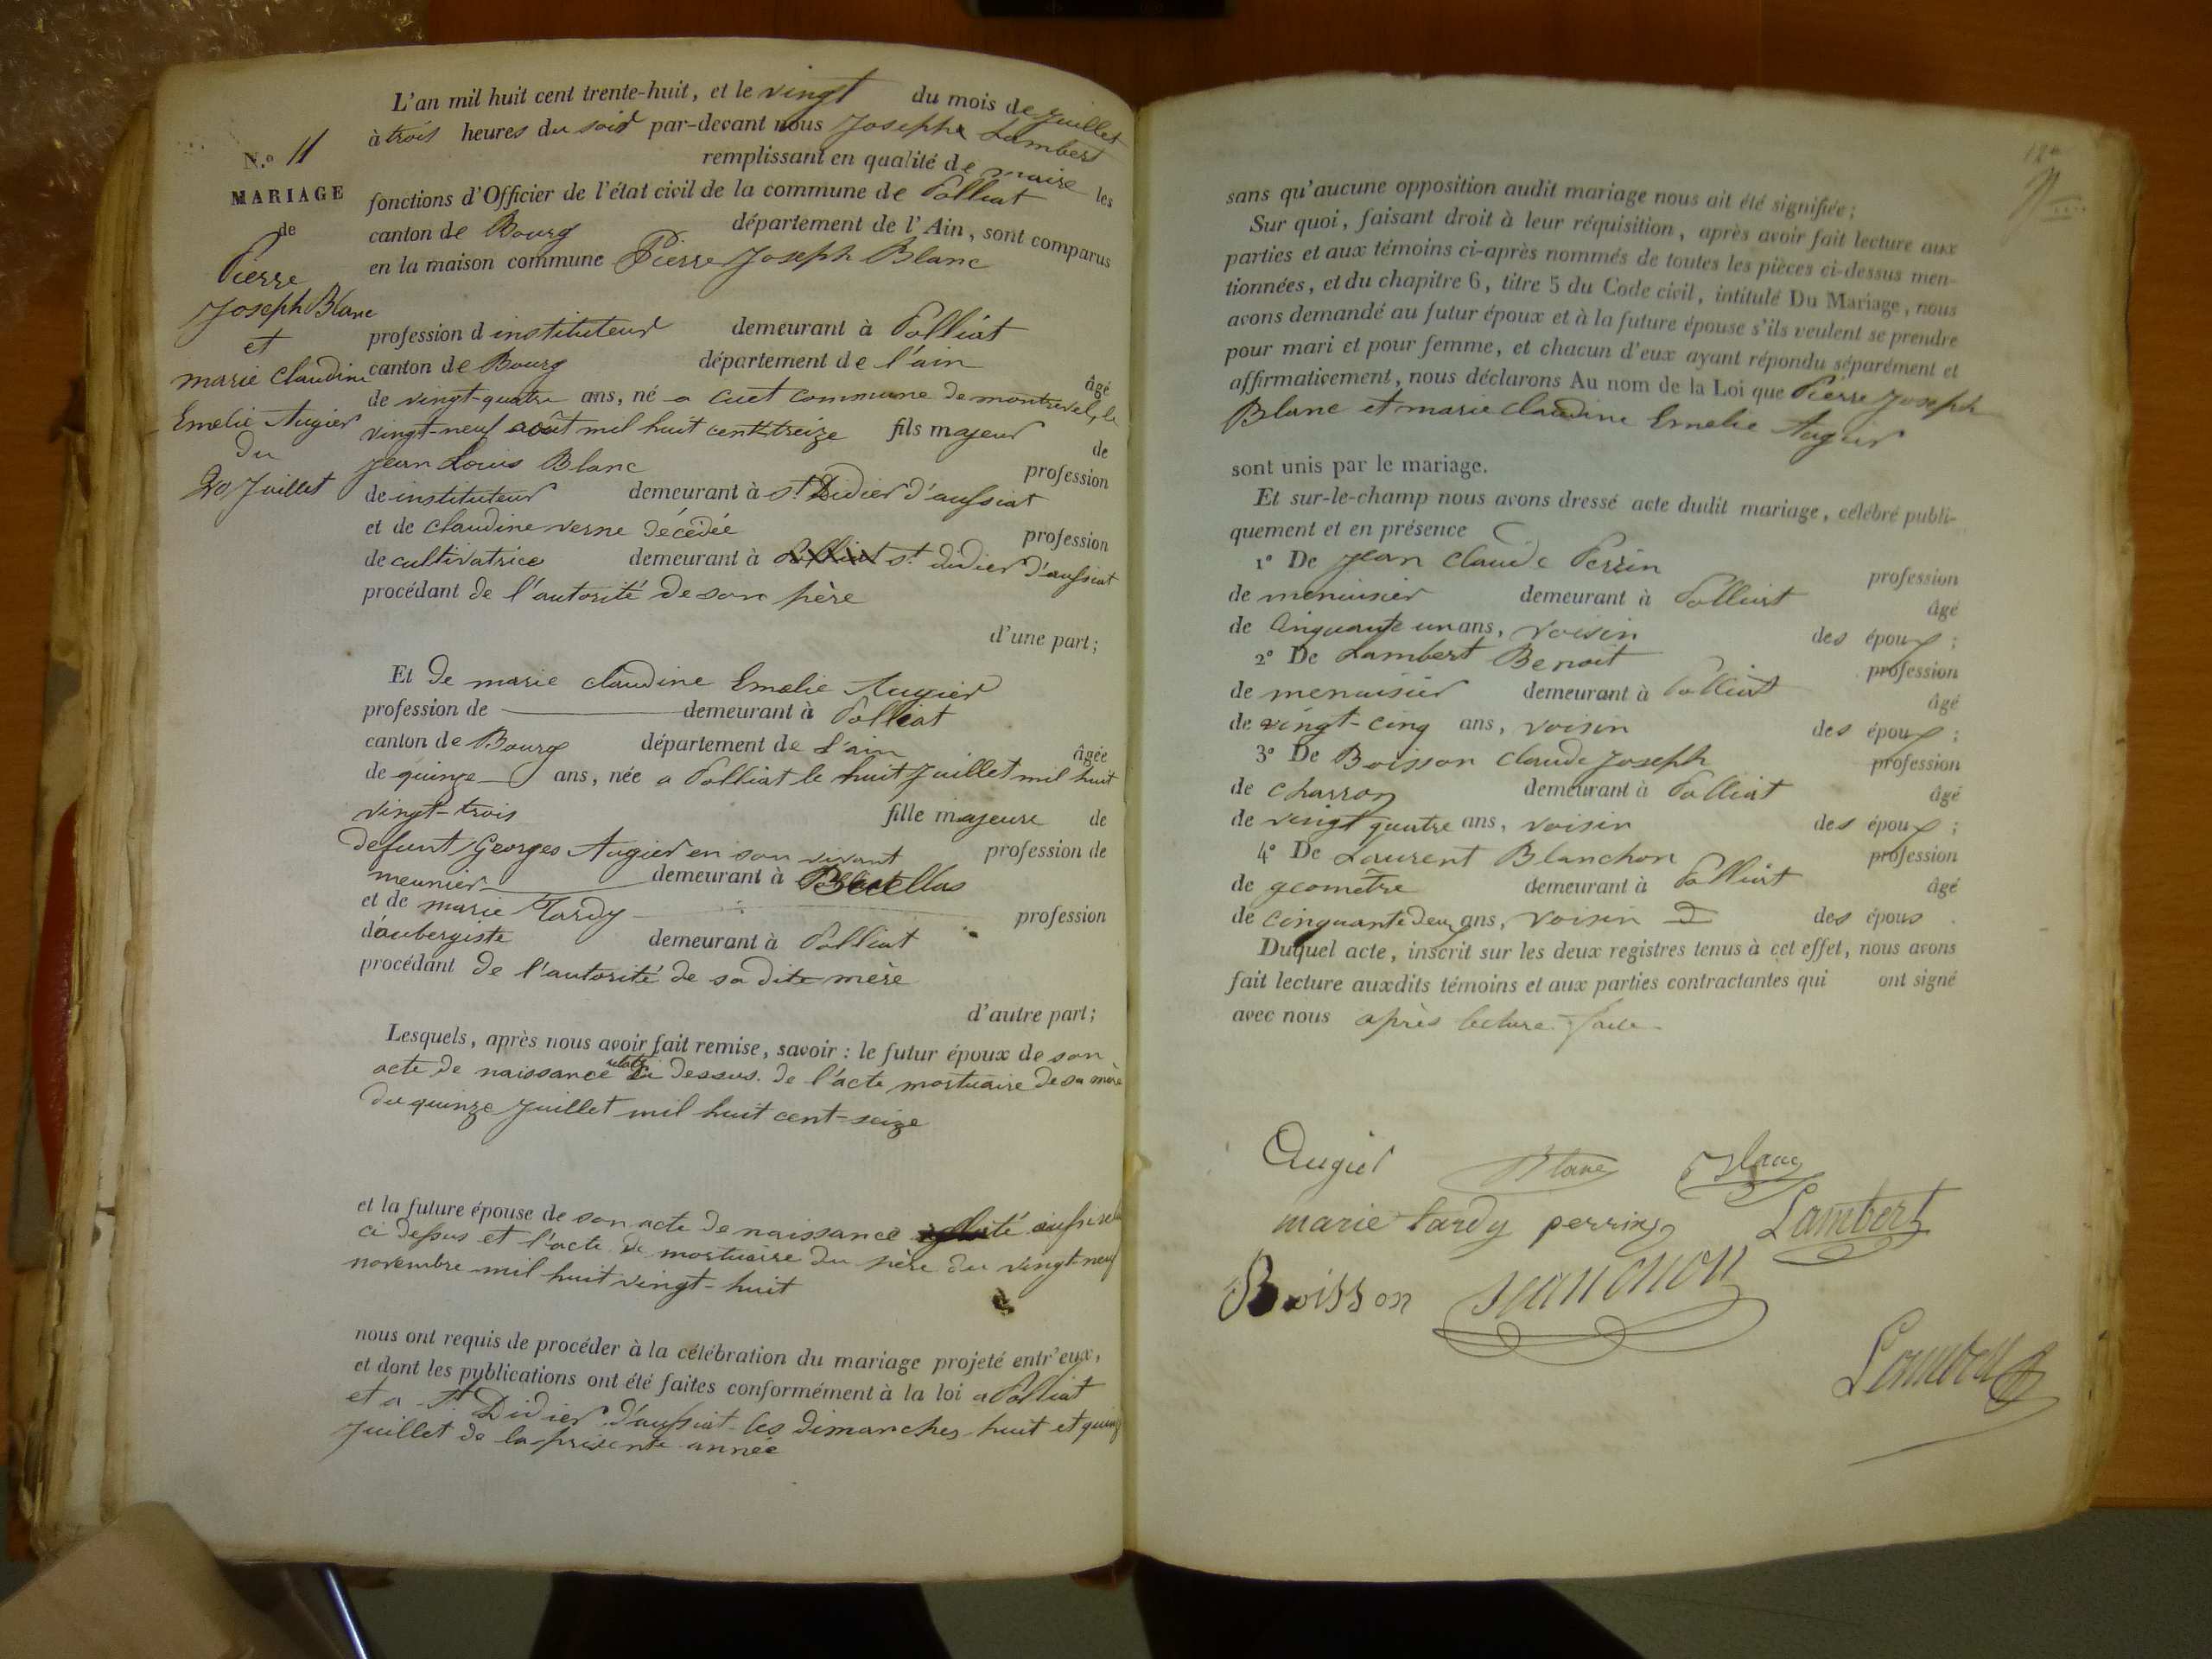 N.o 11
MARIAGE
de
Pierre
Joseph Blanc
et
marie Claudine
Emelie Augier
du
20 Juillet
L'an mil huit cent trente-huit, et le vingt du mois de Juillet
à trois heures du soir par-devant nous Joseph Lambert
remplissant en qualité de maire les
fonctions d'Officier de l'état civil de la commune de Polliat
canton de Bourg département de l'Ain, sont comparus
en la maison commune Pierre Joseph Blanc
profession d instituteur demeurant à Polliat
canton de Bourg département de l'ain
âgé
de vingt-quatre ans, né a cuet commune de montrevel, le
vingt-neuf août mil huit cent treize fils majeur de
Jean Louis Blanc profession
de instituteur demeurant à st Didier d'aussiat
et de claudine verne décédée profession
de cultivatrice demeurant à Polliat st didier d'aussiat
procédant de l'autorité de son père
d'une part;
Et de marie claudine Emelie Augier
profession de demeurant à Polliat
canton de Bourg département de l'ain âgée
de quinze ans, née a Polliat le huit Juillet mil huit
vingt-trois fille majeure de
defunt Georges Augier en son vivant profession de
meunier demeurant à
et de marie Tardy profession
d'aubergiste demeurant à Polliat
procédant de l'autorité de sa dite mère
d'autre part;
Lesquels, après nous avoir fait remise, savoir : le futur époux de son
acte de naissance ci dessus. de l'acte mortuaire de sa mère
du quinze Juillet mil huit cent-seize
et la future épouse de son acte de naissance aussi
ci dessus et l'acte de mortuaire du père du vingt-neuf
novembre mil huit vingt-huit
nous ont requis de procéder à la célébration du mariage projeté entr'eux,
et dont les publications ont été faites conformément à la loi a Polliat
et a st Didier d'aussiat les dimanches huit et quinze
Juillet de la présente année
sans qu'aucune opposition audit mariage nous ait été signifiée;
Sur quoi, faisant droit à leur réquisition, après avoir fait lecture aux
parties et aux témoins ci-après nommés de toutes les pièces ci-dessus men-
tionnées, et du chapitre 6, titre 5 du Code civil, intitulé Du Mariage, nous
avons demandé au futur époux et à la future épouse s'ils veulent se prendre
pour mari et pour femme, et chacun d'eux ayant répondu séparément et
affirmativement, nous déclarons Au nom de la Loi que Pierre Joseph
Blanc et marie claudine Emelie Augier
sont unis par le mariage.
Et sur-le-champ nous avons dressé acte dudit mariage, célébré publi-
quement et en présence
1o De Jean Claude Perrin profession
de menuisier demeurant à Polliat âgé
de Cinquante un ans, voisin des époux;
2o De Lambert Benoit profession
de menuisier demeurant à Polliat âgé
de vingt-cinq ans, voisin des époux;
3o De Boisson claude Joseph profession
de charron demeurant à Polliat âgé
de vingt quatre ans, voisin des époux;
4o De Laurent Blanchon profession
de geometre demeurant à Polliat âgé
de cinquante deux ans, voisin des époux
Duquel acte, inscrit sur les deux registres tenus à cet effet, nous avons
fait lecture auxdits témoins et aux parties contractantes qui ont signé
avec nous après lecture faite
Augier Blanc Blanc
marie tardy perrin Lambert
Boisson Blanchon
Lambert